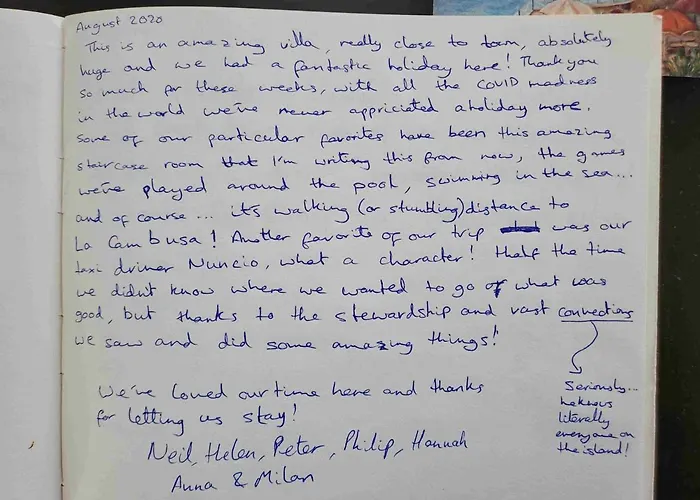 August 2020
This is an amazing villa, really close to town, absolutely
huge and we had a fantastic holiday here! Thank you
so much for these weeks, with all the COVID madness
in the world we've never appriciated a holiday more.
Some of our particular favorites have been this amazing
staircase room that I'm writing this from now, the games
we've played around the pool, swimming in the sea...
and of course... it's walking (or stumbling) distance to
La Cambusa! Another favorite of our trip was our
taxi driver Nuncio, what a character! Half the time
we didn't know where we wanted to go or what was
good, but thanks to the stewardship and vast connections
we saw and did some amazing things!
Seriously...
he knows
literally
everyone on
the island!
We've loved our time here and thanks
for letting us stay!
Neil, Helen, Peter, Philip, Hannah
Anna & Milan